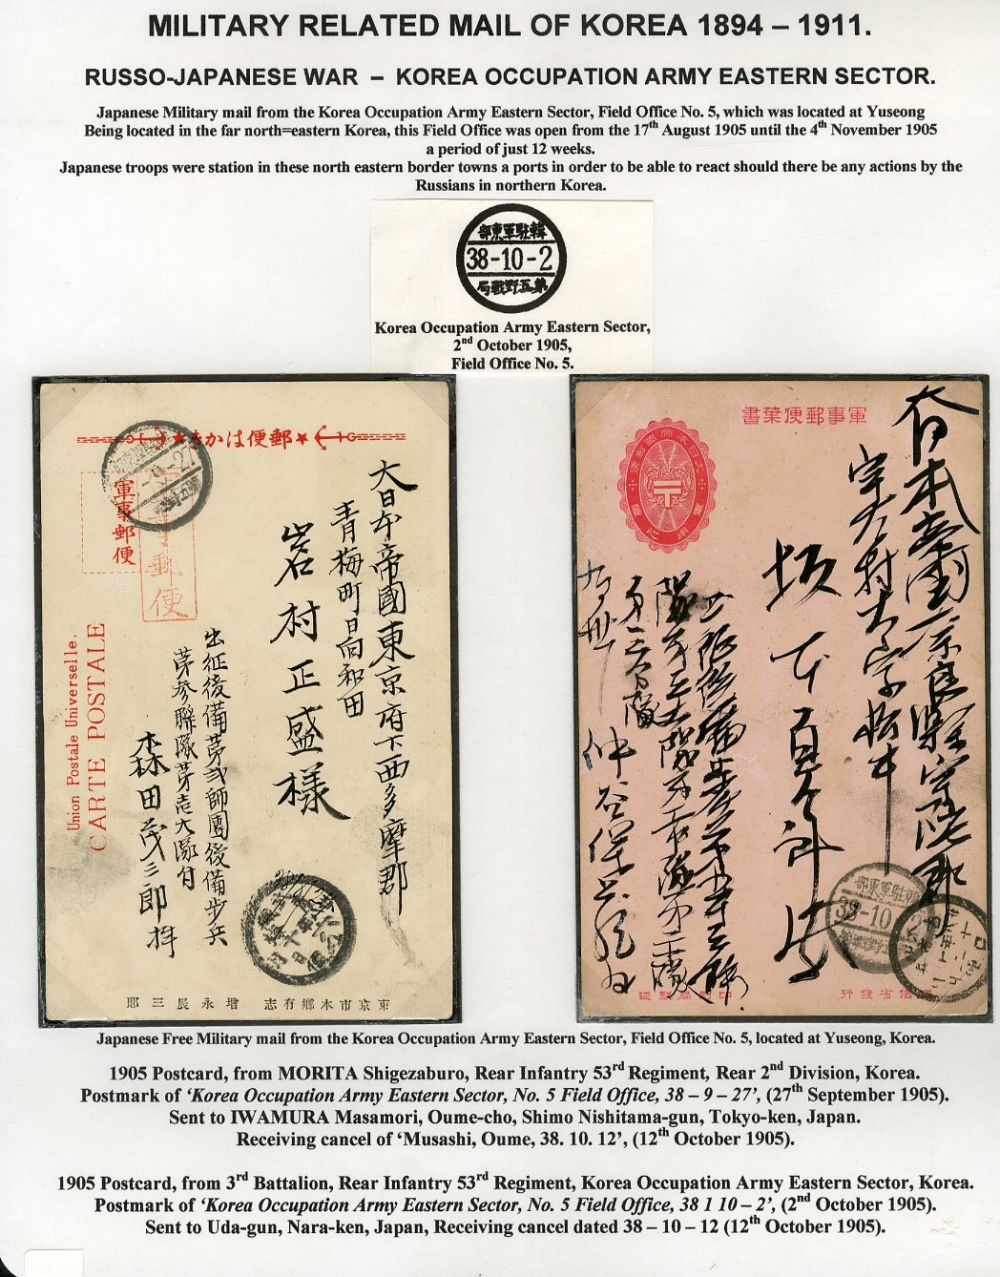 MILITARY RELATED MAIL OF KOREA 1894 – 1911.
RUSSO-JAPANESE WAR – KOREA OCCUPATION ARMY EASTERN SECTOR.
Japanese Military mail from the Korea Occupation Army Eastern Sector, Field Office No. 5, which was located at Yuseong
Being located in the far north=eastern Korea, this Field Office was open from the 17th August 1905 until the 4th November 1905
a period of just 12 weeks.
Japanese troops were station in these north eastern border towns a ports in order to be able to react should there be any actions by the
Russians in northern Korea.
部東軍駐韓
38-10-2
局戰野五第
Korea Occupation Army Eastern Sector,
2nd October 1905,
Field Office No. 5.
きかは便郵
軍事郵便
大日本帝國東京府下西多摩郡
青梅町日向和田
岩村正盛様
出征後備第弐師團後備步兵
第参聯隊第壱大隊付
森田茂三郎
Union Postale Universelle.
CARTE POSTALE
郎三辰永增 志有鄉本市京東
書葉便郵事軍
大日本帝國奈良縣宇陀郡
坂本百次郎
部東軍駐韓
38-10-2
行發省信遞
Japanese Free Military mail from the Korea Occupation Army Eastern Sector, Field Office No. 5, located at Yuseong, Korea.
1905 Postcard, from MORITA Shigezaburo, Rear Infantry 53rd Regiment, Rear 2nd Division, Korea.
Postmark of ‘Korea Occupation Army Eastern Sector, No. 5 Field Office, 38 – 9 – 27’, (27th September 1905).
Sent to IWAMURA Masamori, Oume-cho, Shimo Nishitama-gun, Tokyo-ken, Japan.
Receiving cancel of ‘Musashi, Oume, 38. 10. 12’, (12th October 1905).
1905 Postcard, from 3rd Battalion, Rear Infantry 53rd Regiment, Korea Occupation Army Eastern Sector, Korea.
Postmark of ‘Korea Occupation Army Eastern Sector, No. 5 Field Office, 38 1 10 – 2’, (2nd October 1905).
Sent to Uda-gun, Nara-ken, Japan, Receiving cancel dated 38 – 10 – 12 (12th October 1905).